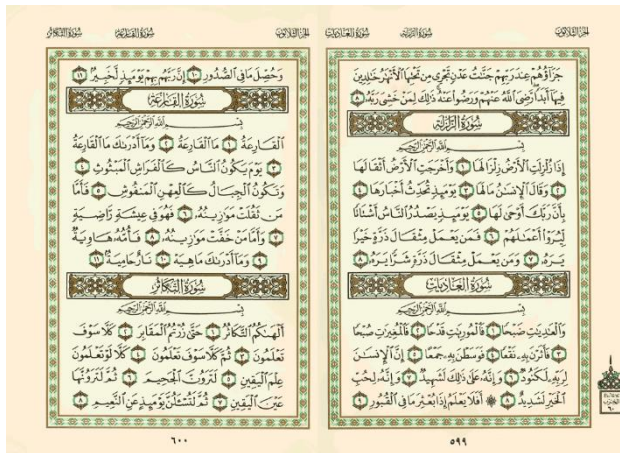 الجزء الثلاثون سورة الزلزلة سورة العاديات
جَزَآؤُهُمْ عِندَ رَبِّهِمْ جَنَّٰتُ عَدْنٍ تَجْرِى مِن تَحْتِهَا ٱلْأَنْهَٰرُ خَٰلِدِينَ
فِيهَآ أَبَدًا رَّضِىَ ٱللَّهُ عَنْهُمْ وَرَضُوا۟ عَنْهُ ذَٰلِكَ لِمَنْ خَشِىَ رَبَّهُۥ ٨
سُورَةُ الزَّلْزَلَةِ
بِسْمِ ٱللَّهِ ٱلرَّحْمَٰنِ ٱلرَّحِيمِ
إِذَا زُلْزِلَتِ ٱلْأَرْضُ زِلْزَالَهَا ١ وَأَخْرَجَتِ ٱلْأَرْضُ أَثْقَالَهَا
٢ وَقَالَ ٱلْإِنسَٰنُ مَا لَهَا ٣ يَوْمَئِذٍ تُحَدِّثُ أَخْبَارَهَا ٤
بِأَنَّ رَبَّكَ أَوْحَىٰ لَهَا ٥ يَوْمَئِذٍ يَصْدُرُ ٱلنَّاسُ أَشْتَاتًا
لِّيُرَوْا۟ أَعْمَٰلَهُمْ ٦ فَمَن يَعْمَلْ مِثْقَالَ ذَرَّةٍ خَيْرًا
يَرَهُۥ ٧ وَمَن يَعْمَلْ مِثْقَالَ ذَرَّةٍ شَرًّا يَرَهُۥ ٨
سُورَةُ العَادِيَاتِ
بِسْمِ ٱللَّهِ ٱلرَّحْمَٰنِ ٱلرَّحِيمِ
وَٱلْعَٰدِيَٰتِ ضَبْحًا ١ فَٱلْمُورِيَٰتِ قَدْحًا ٢ فَٱلْمُغِيرَٰتِ صُبْحًا
٣ فَأَثَرْنَ بِهِۦ نَقْعًا ٤ فَوَسَطْنَ بِهِۦ جَمْعًا ٥ إِنَّ ٱلْإِنسَٰنَ
لِرَبِّهِۦ لَكَنُودٌ ٦ وَإِنَّهُۥ عَلَىٰ ذَٰلِكَ لَشَهِيدٌ ٧ وَإِنَّهُۥ لِحُبِّ
ٱلْخَيْرِ لَشَدِيدٌ ٨ ۞ أَفَلَا يَعْلَمُ إِذَا بُعْثِرَ مَا فِى ٱلْقُبُورِ ٩
٥٩٩
الحزب
٦٠
الجزء الثلاثون سورة القارعة سورة التكاثر
وَحُصِّلَ مَا فِى ٱلصُّدُورِ ١٠ إِنَّ رَبَّهُم بِهِمْ يَوْمَئِذٍ لَّخَبِيرٌۢ ١١
سُورَةُ القَارِعَةِ
بِسْمِ ٱللَّهِ ٱلرَّحْمَٰنِ ٱلرَّحِيمِ
ٱلْقَارِعَةُ ١ مَا ٱلْقَارِعَةُ ٢ وَمَآ أَدْرَىٰكَ مَا ٱلْقَارِعَةُ
٣ يَوْمَ يَكُونُ ٱلنَّاسُ كَٱلْفَرَاشِ ٱلْمَبْثُوثِ ٤
وَتَكُونُ ٱلْجِبَالُ كَٱلْعِهْنِ ٱلْمَنفُوشِ ٥ فَأَمَّا
مَن ثَقُلَتْ مَوَٰزِينُهُۥ ٦ فَهُوَ فِى عِيشَةٍ رَّاضِيَةٍ
٧ وَأَمَّا مَنْ خَفَّتْ مَوَٰزِينُهُۥ ٨ فَأُمُّهُۥ هَاوِيَةٌ
٩ وَمَآ أَدْرَىٰكَ مَا هِيَهْ ١٠ نَارٌ حَامِيَةٌۢ ١١
سُورَةُ التَّكَاثُرِ
بِسْمِ ٱللَّهِ ٱلرَّحْمَٰنِ ٱلرَّحِيمِ
أَلْهَىٰكُمُ ٱلتَّكَاثُرُ ١ حَتَّىٰ زُرْتُمُ ٱلْمَقَابِرَ ٢ كَلَّا سَوْفَ
تَعْلَمُونَ ٣ ثُمَّ كَلَّا سَوْفَ تَعْلَمُونَ ٤ كَلَّا لَوْ تَعْلَمُونَ
عِلْمَ ٱلْيَقِينِ ٥ لَتَرَوُنَّ ٱلْجَحِيمَ ٦ ثُمَّ لَتَرَوُنَّهَا
عَيْنَ ٱلْيَقِينِ ٧ ثُمَّ لَتُسْـَٔلُنَّ يَوْمَئِذٍ عَنِ ٱلنَّعِيمِ ٨
٦٠٠